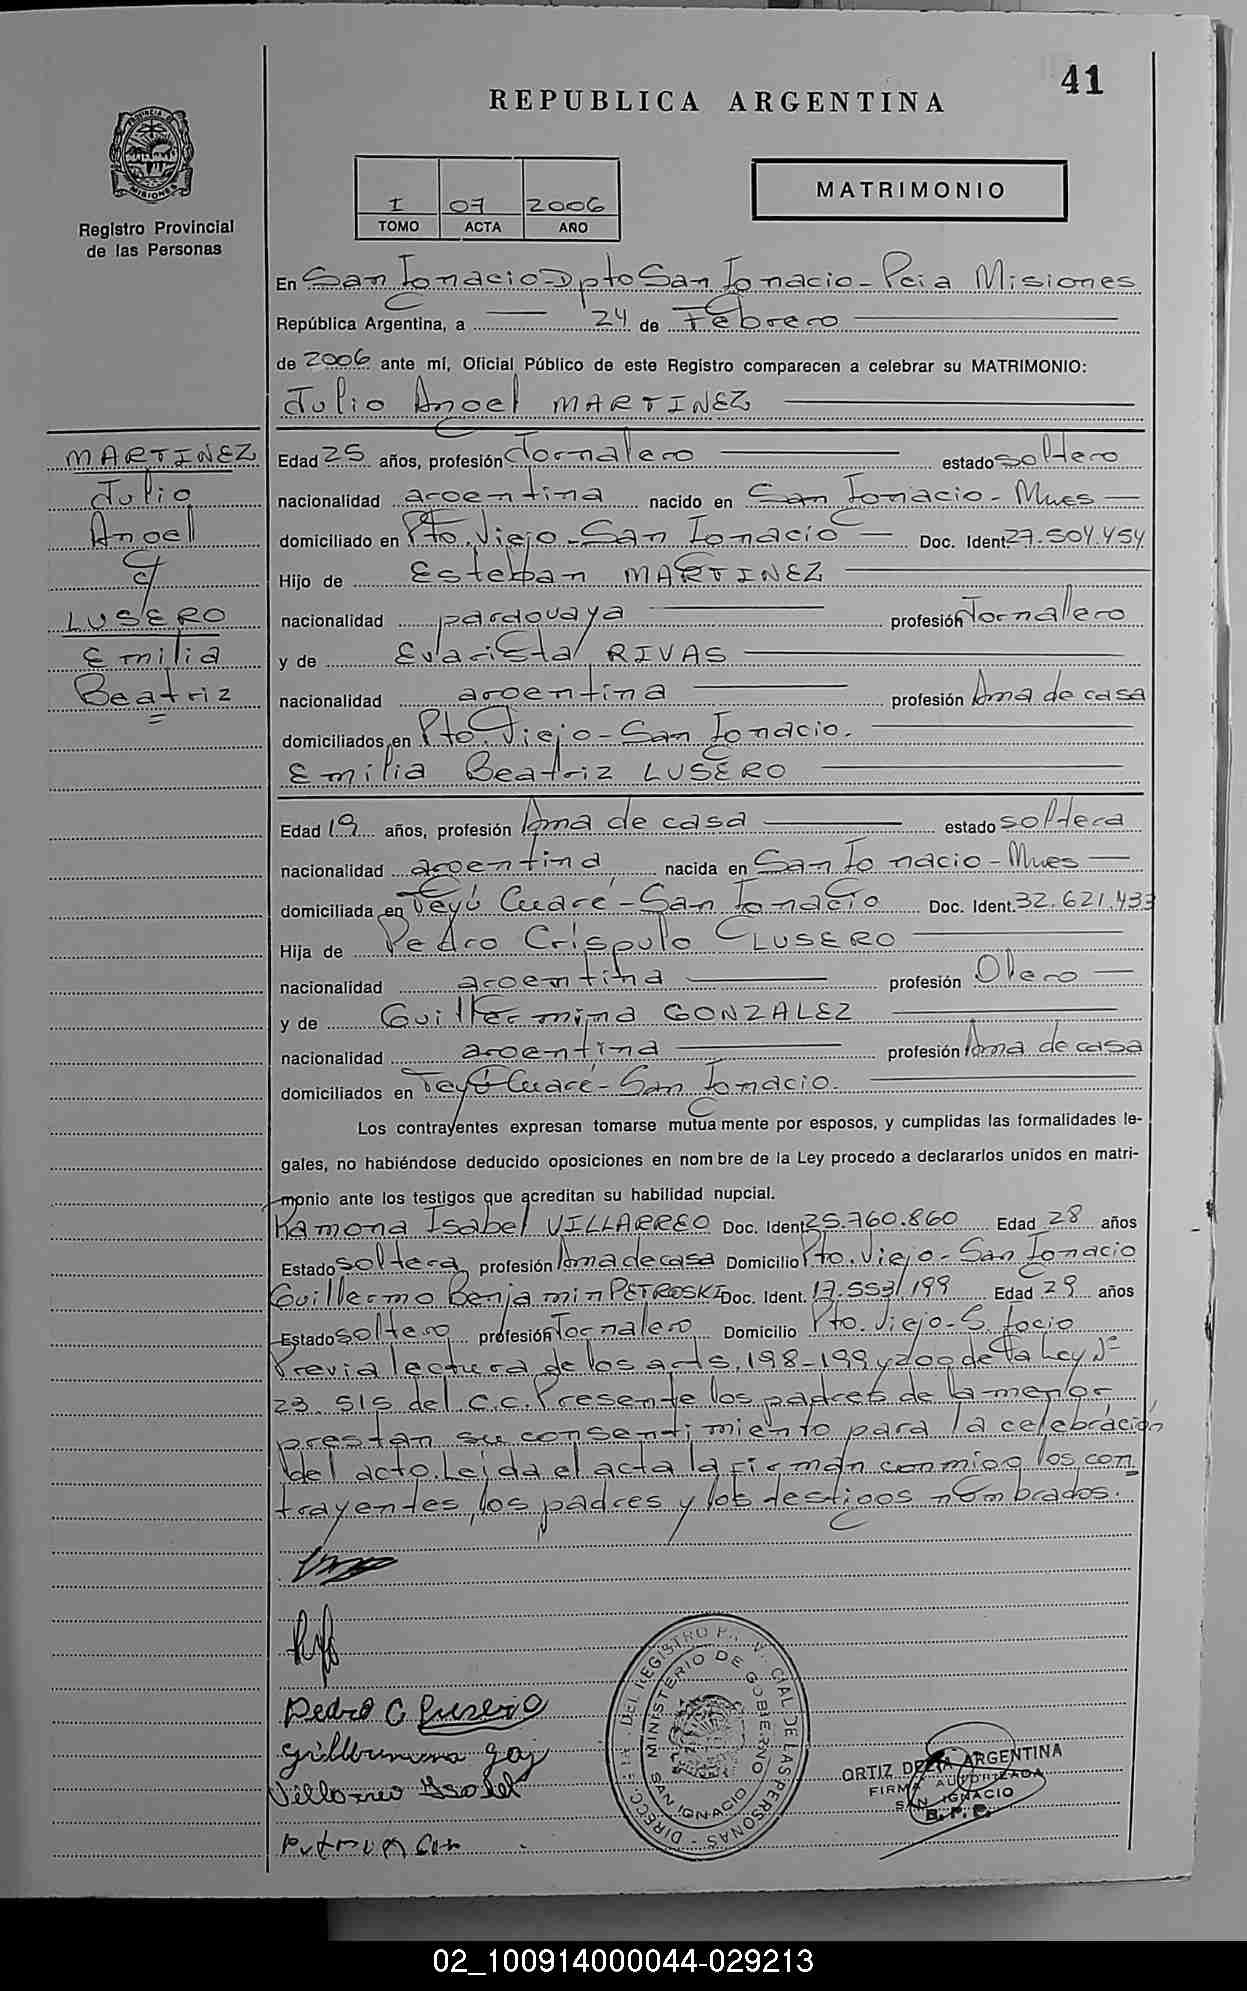 41
REPUBLICA ARGENTINA
PROVINCIA DE MISIONES
Registro Provincial
de las Personas
I 07 2006
TOMO ACTA AÑO
MATRIMONIO
En San Ignacio Dpto San Ignacio - Pcia Misiones
República Argentina, a 24 de Febrero
de 2006 ante mí, Oficial Público de este Registro comparecen a celebrar su MATRIMONIO:
Julio Angel MARTINEZ
MARTINEZ
Julio
Angel
c/
LUSERO
Emilia
Beatriz
Edad 25 años, profesión Jornalero estado soltero
nacionalidad argentina nacido en San Ignacio - Mnes
domiciliado en Pto. Viejo - San Ignacio Doc. Ident. 27.504.454
Hijo de Esteban MARTINEZ
nacionalidad paraguaya profesión Jornalero
y de Evarista RIVAS
nacionalidad argentina profesión Ama de casa
domiciliados en Pto. Viejo - San Ignacio.
Emilia Beatriz LUSERO
Edad 19 años, profesión Ama de casa estado soltera
nacionalidad argentina nacida en San Ignacio - Mnes
domiciliada en Teyú Cuaré - San Ignacio Doc. Ident. 32.621.433
Hija de Pedro Críspulo LUSERO
nacionalidad argentina profesión Olero
y de Guillermina GONZALEZ
nacionalidad argentina profesión Ama de casa
domiciliados en Teyú Cuaré - San Ignacio.
Los contrayentes expresan tomarse mutua mente por esposos, y cumplidas las formalidades le-
gales, no habiéndose deducido oposiciones en nom bre de la Ley procedo a declararlos unidos en matri-
monio ante los testigos que acreditan su habilidad nupcial.
Ramona Isabel VILLARREO Doc. Ident. 25.760.860 Edad 28 años
Estado soltera profesión Ama de casa Domicilio Pto. Viejo - San Ignacio
Guillermo Benjamin PETROSKI Doc. Ident. 17.553/199 Edad 29 años
Estado soltero profesión Jornalero Domicilio Pto. Viejo - S. Igcio
Previa lectura de los arts. 198-199 y 200 de la Ley Nº
23.515 del C.C. Presente los padres de la menor
prestan su consentimiento para la celebración
del acto. Leida el acta la firman conmigo los con
trayentes, los padres y los testigos nombrados.
Pedro C Lusero
Villarreo Isabel
DIRECC. GRAL. DEL REGISTRO PROVINCIAL DE LAS PERSONAS -
MINISTERIO DE GOBIERNO
SAN IGNACIO
ORTIZ ARGENTINA
FIRMA AUTORIZADA
SAN IGNACIO
R.P.P.
02_100914000044-029213